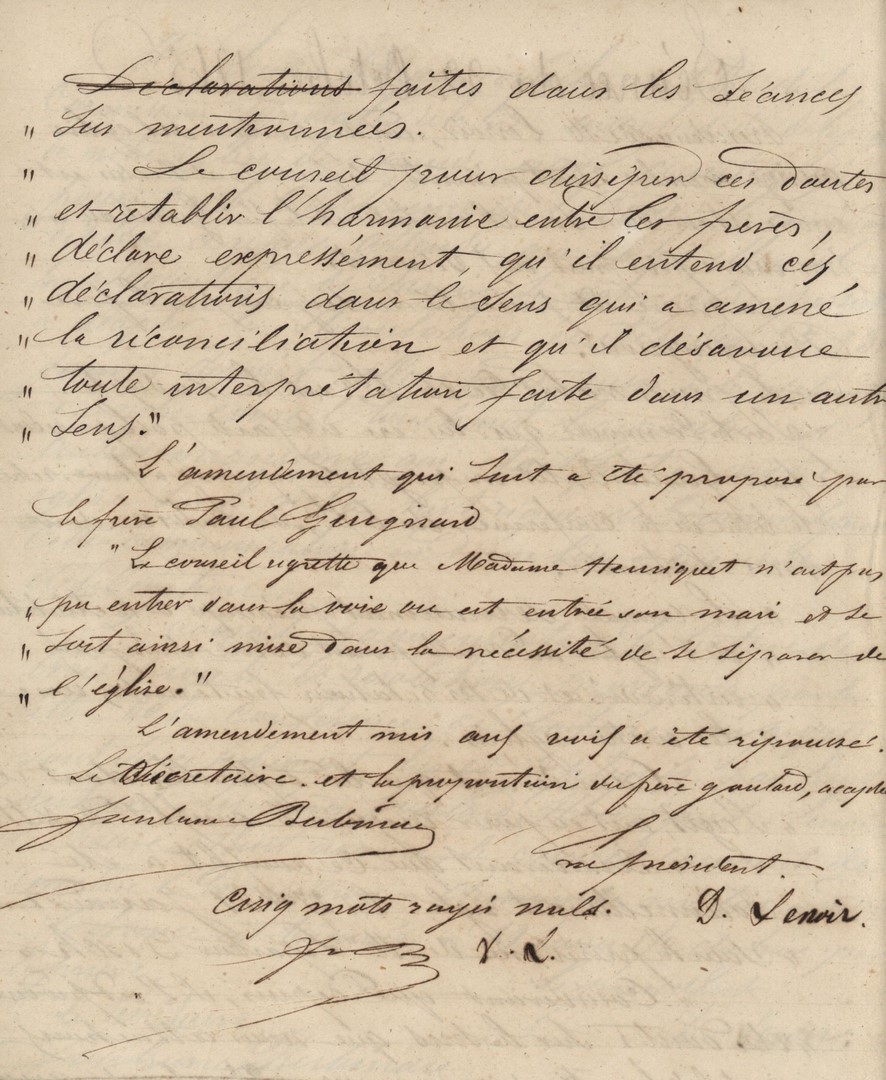 Déclarations faites dans les Séances
" Sus mentionnées.
" Le conseil pour dissiper ces doutes
" et rétablir l'harmonie entre les frères,
" déclare expressément, qu'il entend ces
" déclarations dans le sens qui a amené
" la réconciliation et qu'il désavoue
" toute interprétation faite dans un autre
" Sens."
L'amendement qui suit a été proposé par
le frère Paul Guignard
" Le conseil regrette que Madame Henriquet n'ait pas
" pu entrer dans la voie ou est entrée son mari et se
" soit ainsi mise dans la nécessité de se séparer de
" l'église."
L'amendement mis aux voix a été repoussé.
Le Sécretaire. et la proposition du frère goulard,
président.
Cinq mots rayés nuls. D. Lenoir.
D. L.